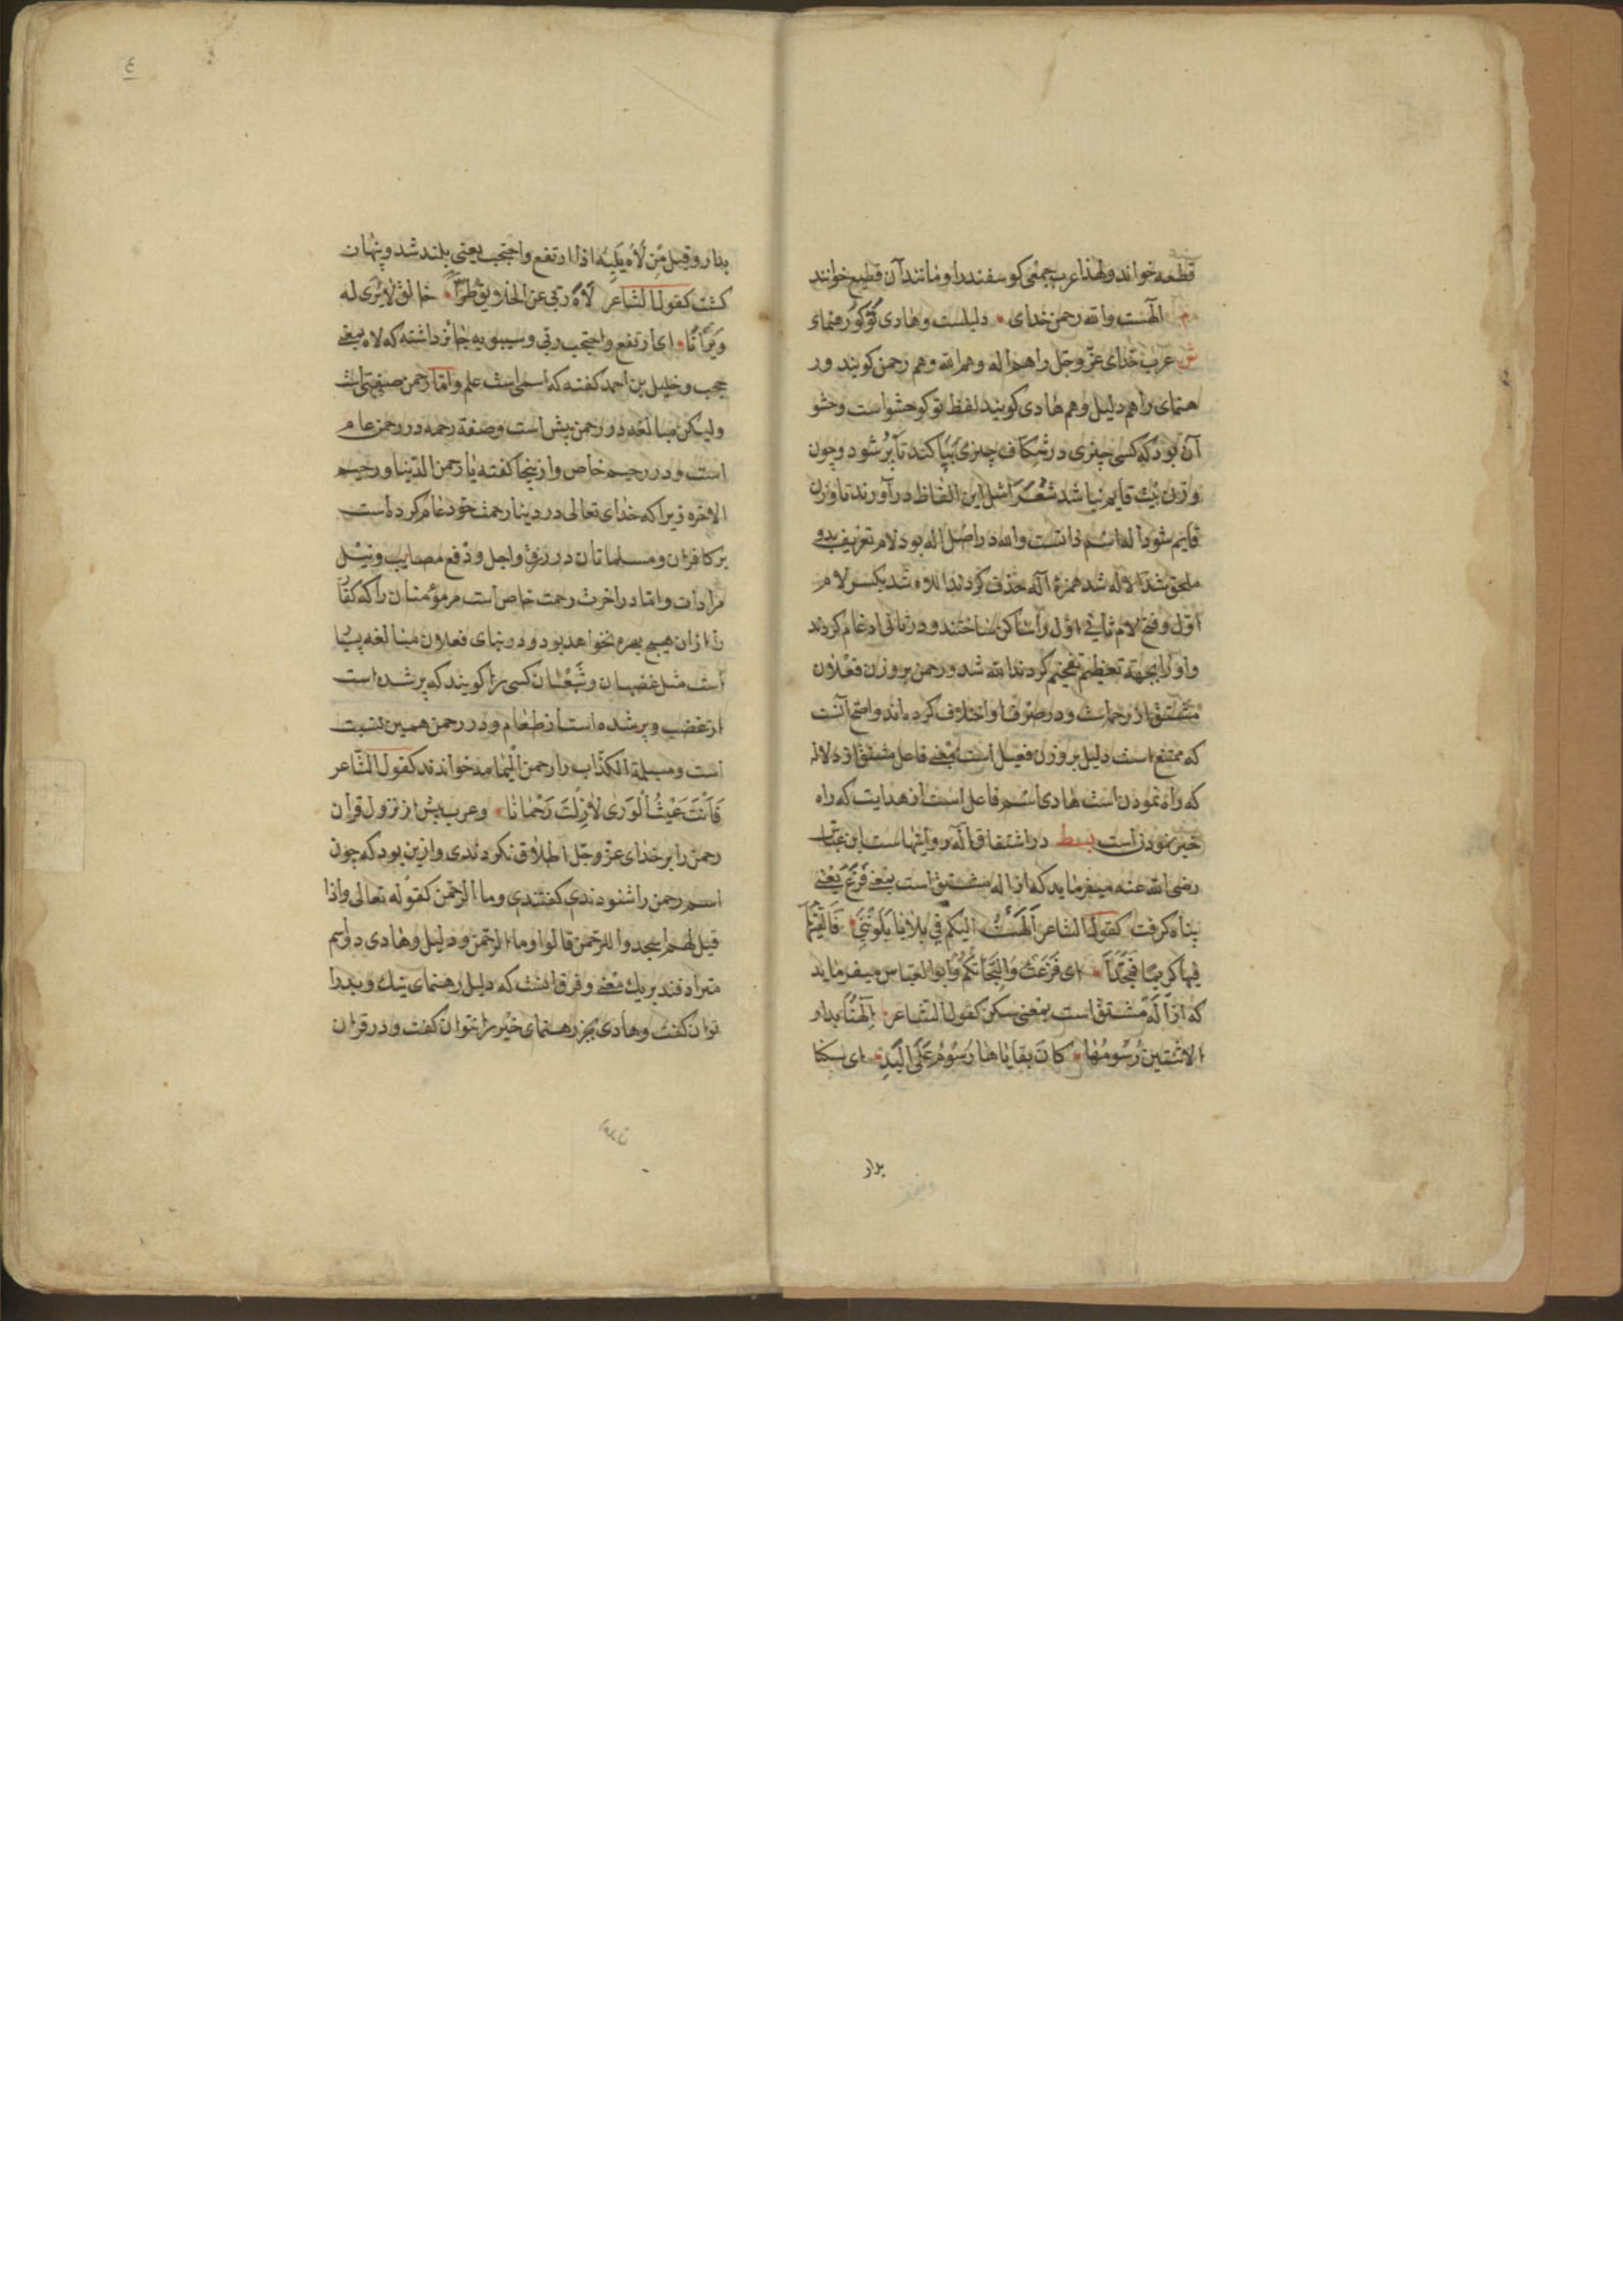 قطعه خواند ولهذا عرب جمعی کوسفند را ومانند آن قطیع خوانند
م الهست والله رحمن خدای • دلیلست وهادی تو کو رهنمای
ش عرب خدای عزّ وجل را هم اله وهم الله وهم رحمن کویند ور
هنمای را هم دلیل وهم هادی کویند لفظ تو کو حشو است وحشو
آن بود که کسی چیزی در شکاف چیزی بپاکند تا پر شود وچون
وزن بیت قایم نباشد شعرا مثل این الفاظ در آورند تا وزن
قایم شود اله اسم ذاتست والله در اصل اله بود لام تعریف بدو
ملحق شد الاله شد همزهٔ اله حذف کردند اللاه شد بکسر لام
اول وفتح لام ثانی اول را ساکن ساختند ودر ثانی ادغام کردند
واو را بجهة تعظیم تفخیم کردند الله شد ورحمن بر وزن فعلان
مشتق از رحم است ودر صرف او اختلاف کرده اند واصح آنست
که ممتنع است دلیل بر وزن فعیل است بمعنی فاعل مشتق از دلاله
که راه نمودن است هادی اسم فاعل است از هدایت که راه
خیر نمودن است بسط در اشتقاق اله روایتهاست ابن عباس
رضی الله عنه میفرماید که از اله مشتق است بمعنی فزع یعنی
پناه کرفت کقول الشاعر الهت الیکم فی بلایا بلوننی • فالفیتکم
فیها کریما ممجدا • ای فزعت والتجات بکم وابوالعباس میفرماید
که از اله مشتق است بمعنی سکن کقول الشاعر • الهنا بدار
لا تبین رسومها • کان بقایاها رسوم علی الید • ای سکنا
بدار
٤
بدار وقیل من لاه یلیه اذا ارتفع واحتجب یعنی بلند شد وپنهان
کشت کقول الشاعر لاه ربی عن الخلایق طرا • خالق لا یری له
ویرانا • ای ارتفع واحتجب ربی وسیبویه جائز داشته که لاه بمعنی
حجب وخلیل بن احمد کفته که اسمی است علم واما رحمن صفتی است
ولیکن مبالغه در رحمن بیش است وصفة رحمه در رحمن عام
است ودر رحیم خاص وازینجا کفته یا رحمن الدنیا ورحیم
الاخره زیرا که خدای تعالی در دنیا رحمت خود عام کرده است
بر کافران ومسلمانان در رزق واجل ودفع مصایب ونیل
مرادات واما در اخرت رحمت خاص است مر مؤمنان را که کفا
را ازان هیچ بهره نخواهد بود ودر بنای فعلان مبالغه بسیا
است مثل غضبان وشبعان کسی را کویند که پر شده است
از غضب وپر شده است از طعام ودر رحمن همین نسبت
است ومسیلمة الکذاب را رحمن الیمامه خواندند کقول الشاعر
فانت غیث الوری لا زلت رحمانا • وعرب پیش از نزول قران
رحمن را بر خدای عزّ وجل اطلاق نکردندی وازین بود که چون
اسم رحمن را شنودندی کفتندی وما الرحمن کقوله تعالی واذا
قیل لهم اسجدوا للرحمن قالوا وما الرحمن ودلیل وهادی دو اسم
مترادفند بر یک معنی وفرق انست که دلیل رهنمای نیک وبد را
توان کفت وهادی بجز رهنمای خیر را نتوان کفت ودر قران